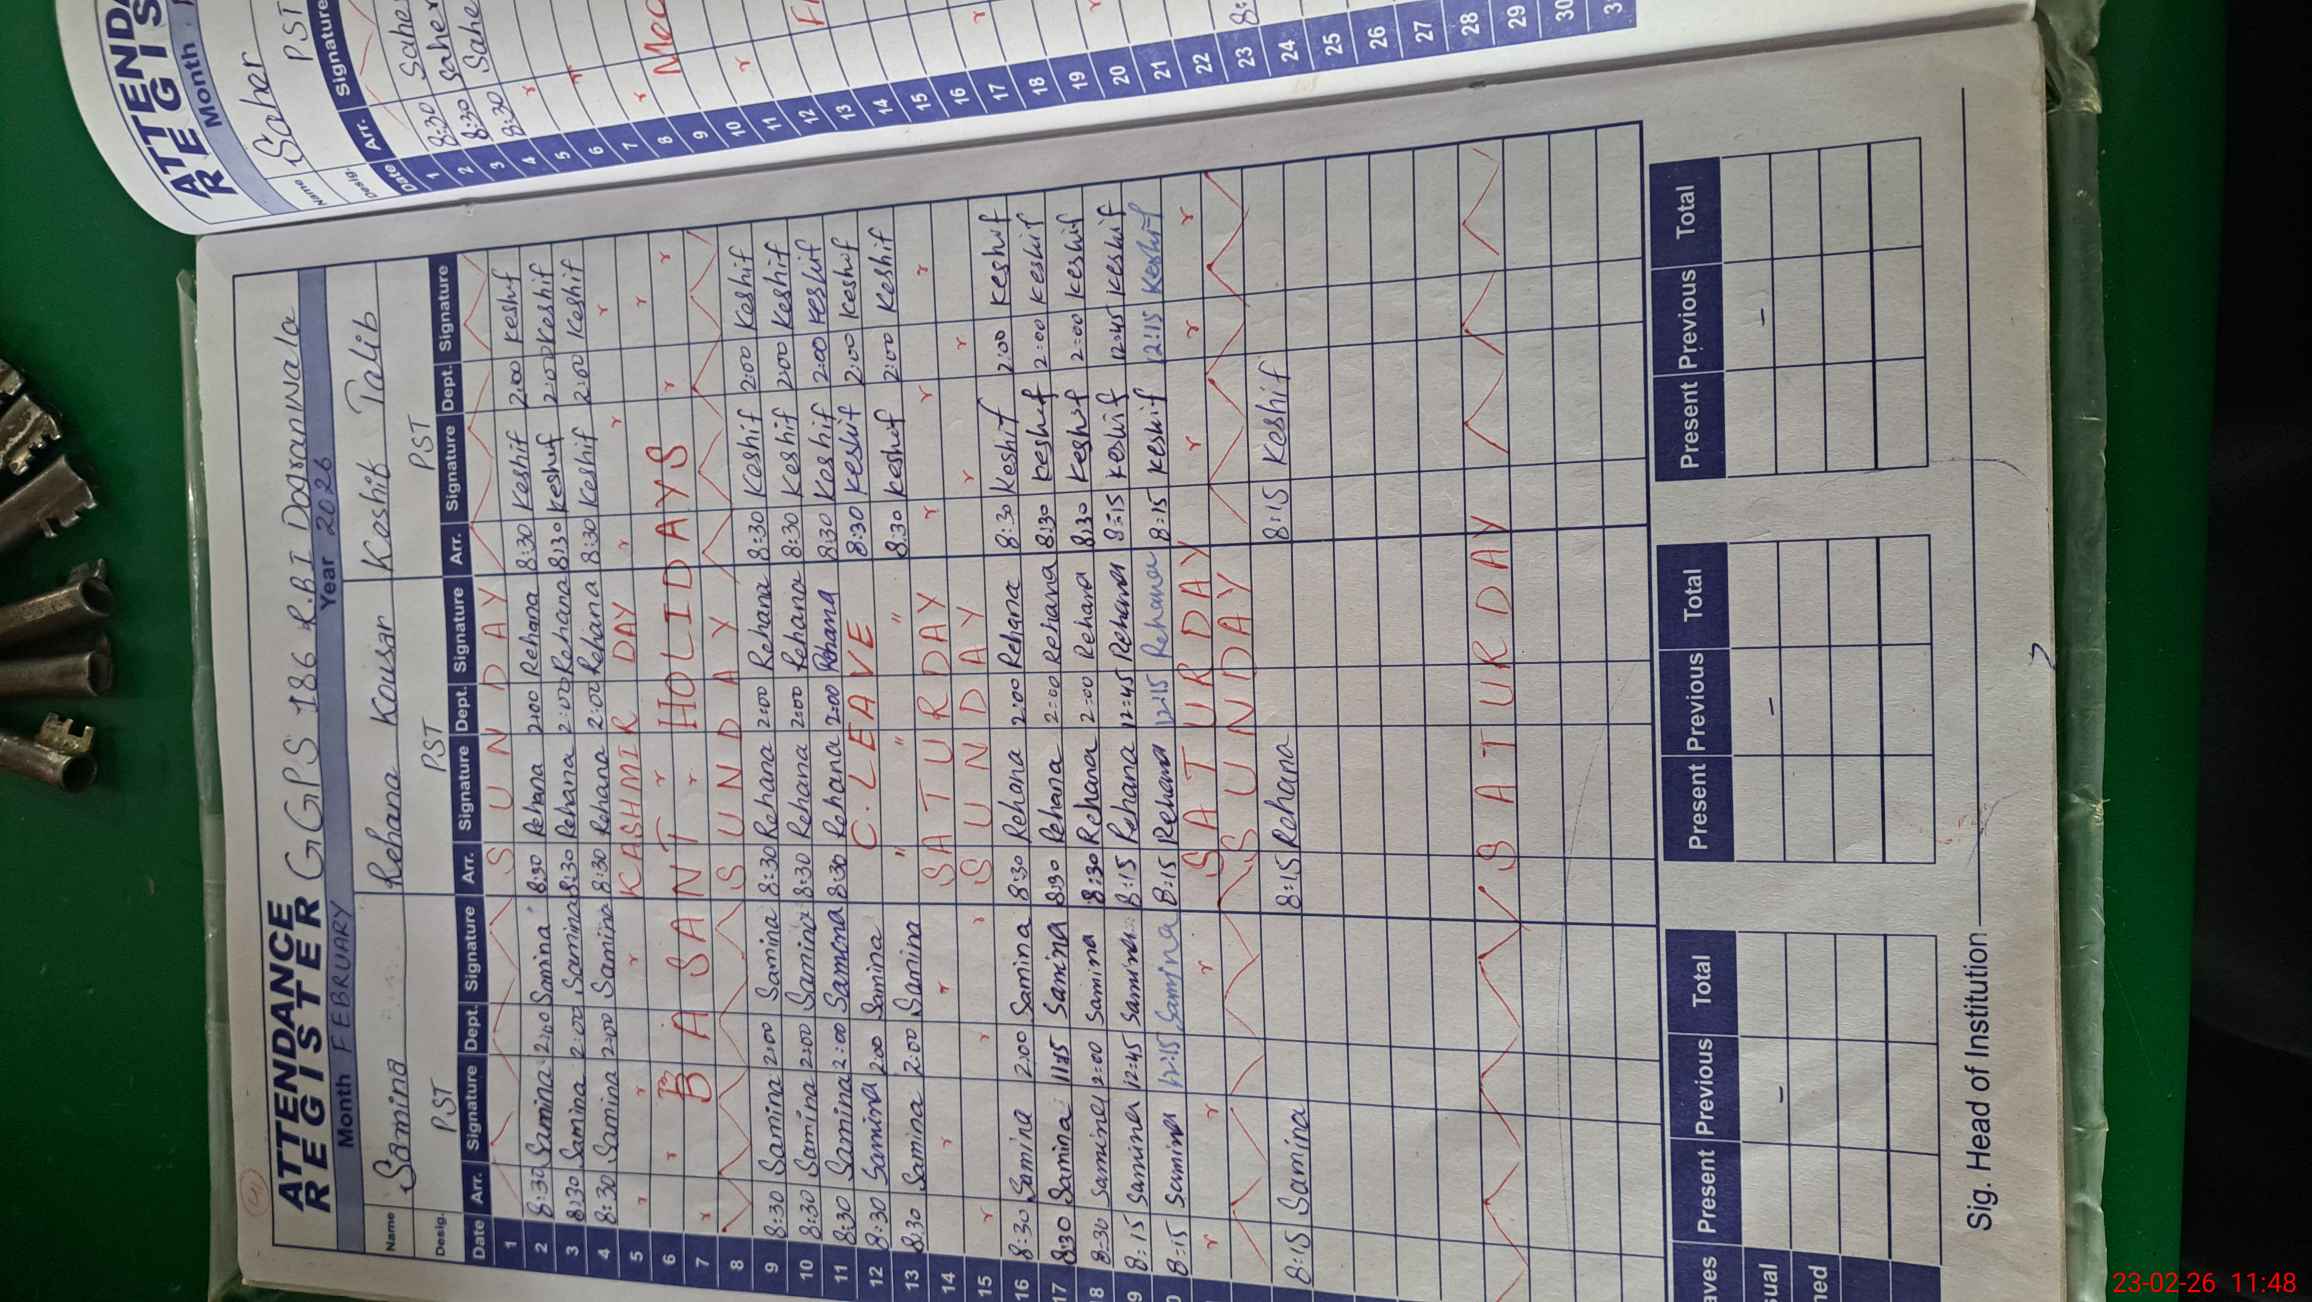 ATTENDANCE
REGISTER GGPS 186 R.BI Dogranwala
Month FEBRUARY Year 2026
Name Samina Rehana Kousar Kashif Talib
Desig. PST PST PST
Date Arr. Signature Dept. Signature Arr. Signature Dept. Signature Arr. Signature Dept. Signature
1 SUNDAY
2 8:30 Samina 2:00 Samina 8:30 Rehana 2:00 Rehana 8:30 Keshif 2:00 Keshif
3 8:30 Samina 2:00 Samina 8:30 Rehana 2:00 Rehana 8:30 Keshif 2:00 Keshif
4 8:30 Samina 2:00 Samina 8:30 Rehana 2:00 Rehana 8:30 Keshif 2:00 Keshif
5 KASHMIR DAY
6 BASANT HOLIDAYS
7
8 SUNDAY
9 8:30 Samina 2:00 Samina 8:30 Rehana 2:00 Rehana 8:30 Keshif 2:00 Keshif
10 8:30 Samina 2:00 Samina 8:30 Rehana 2:00 Rehana 8:30 Keshif 2:00 Keshif
11 8:30 Samina 2:00 Samina 8:30 Rehana 2:00 Rehana 8:30 Keshif 2:00 Keshif
12 8:30 Samina 2:00 Samina C.LEAVE 8:30 Keshif 2:00 Keshif
13 8:30 Samina 2:00 Samina " " " 8:30 Keshif 2:00 Keshif
14 SATURDAY
15 SUNDAY
16 8:30 Samina 2:00 Samina 8:30 Rehana 2:00 Rehana 8:30 Keshif 2:00 Keshif
17 8:30 Samina 11:15 Samina 8:30 Rehana 2:00 Rehana 8:30 Keshif 2:00 Keshif
8 8:30 Samina 2:00 Samina 8:30 Rehana 2:00 Rehana 8:30 Keshif 2:00 Keshif
9 8:15 Samina 12:45 Samina 8:15 Rehana 12:45 Rehana 8:15 Keshif 12:45 Keshif
8:15 Samina 12:15 Samina 8:15 Rehana 12:15 Rehana 8:15 Keshif 12:15 Keshif
SATURDAY
SUNDAY
8:15 Samina 8:15 Rehana 8:15 Keshif
SATURDAY
aves Present Previous Total Present Previous Total Present Previous Total
sual - - -
ned
Sig. Head of Institution
ATTENDA
REGIS
Month
Name Saher
Desig. PST
Date Arr. Signature
1 8:30 Sahe
2 8:30 Saher
3 8:30 Sahe
4
5
6
7
8
9
10
11
12
13
14
15
16
17
18
19
20
21
22
23 8:
24
25
26
27
28
29
30
3
23-02-26 11:48